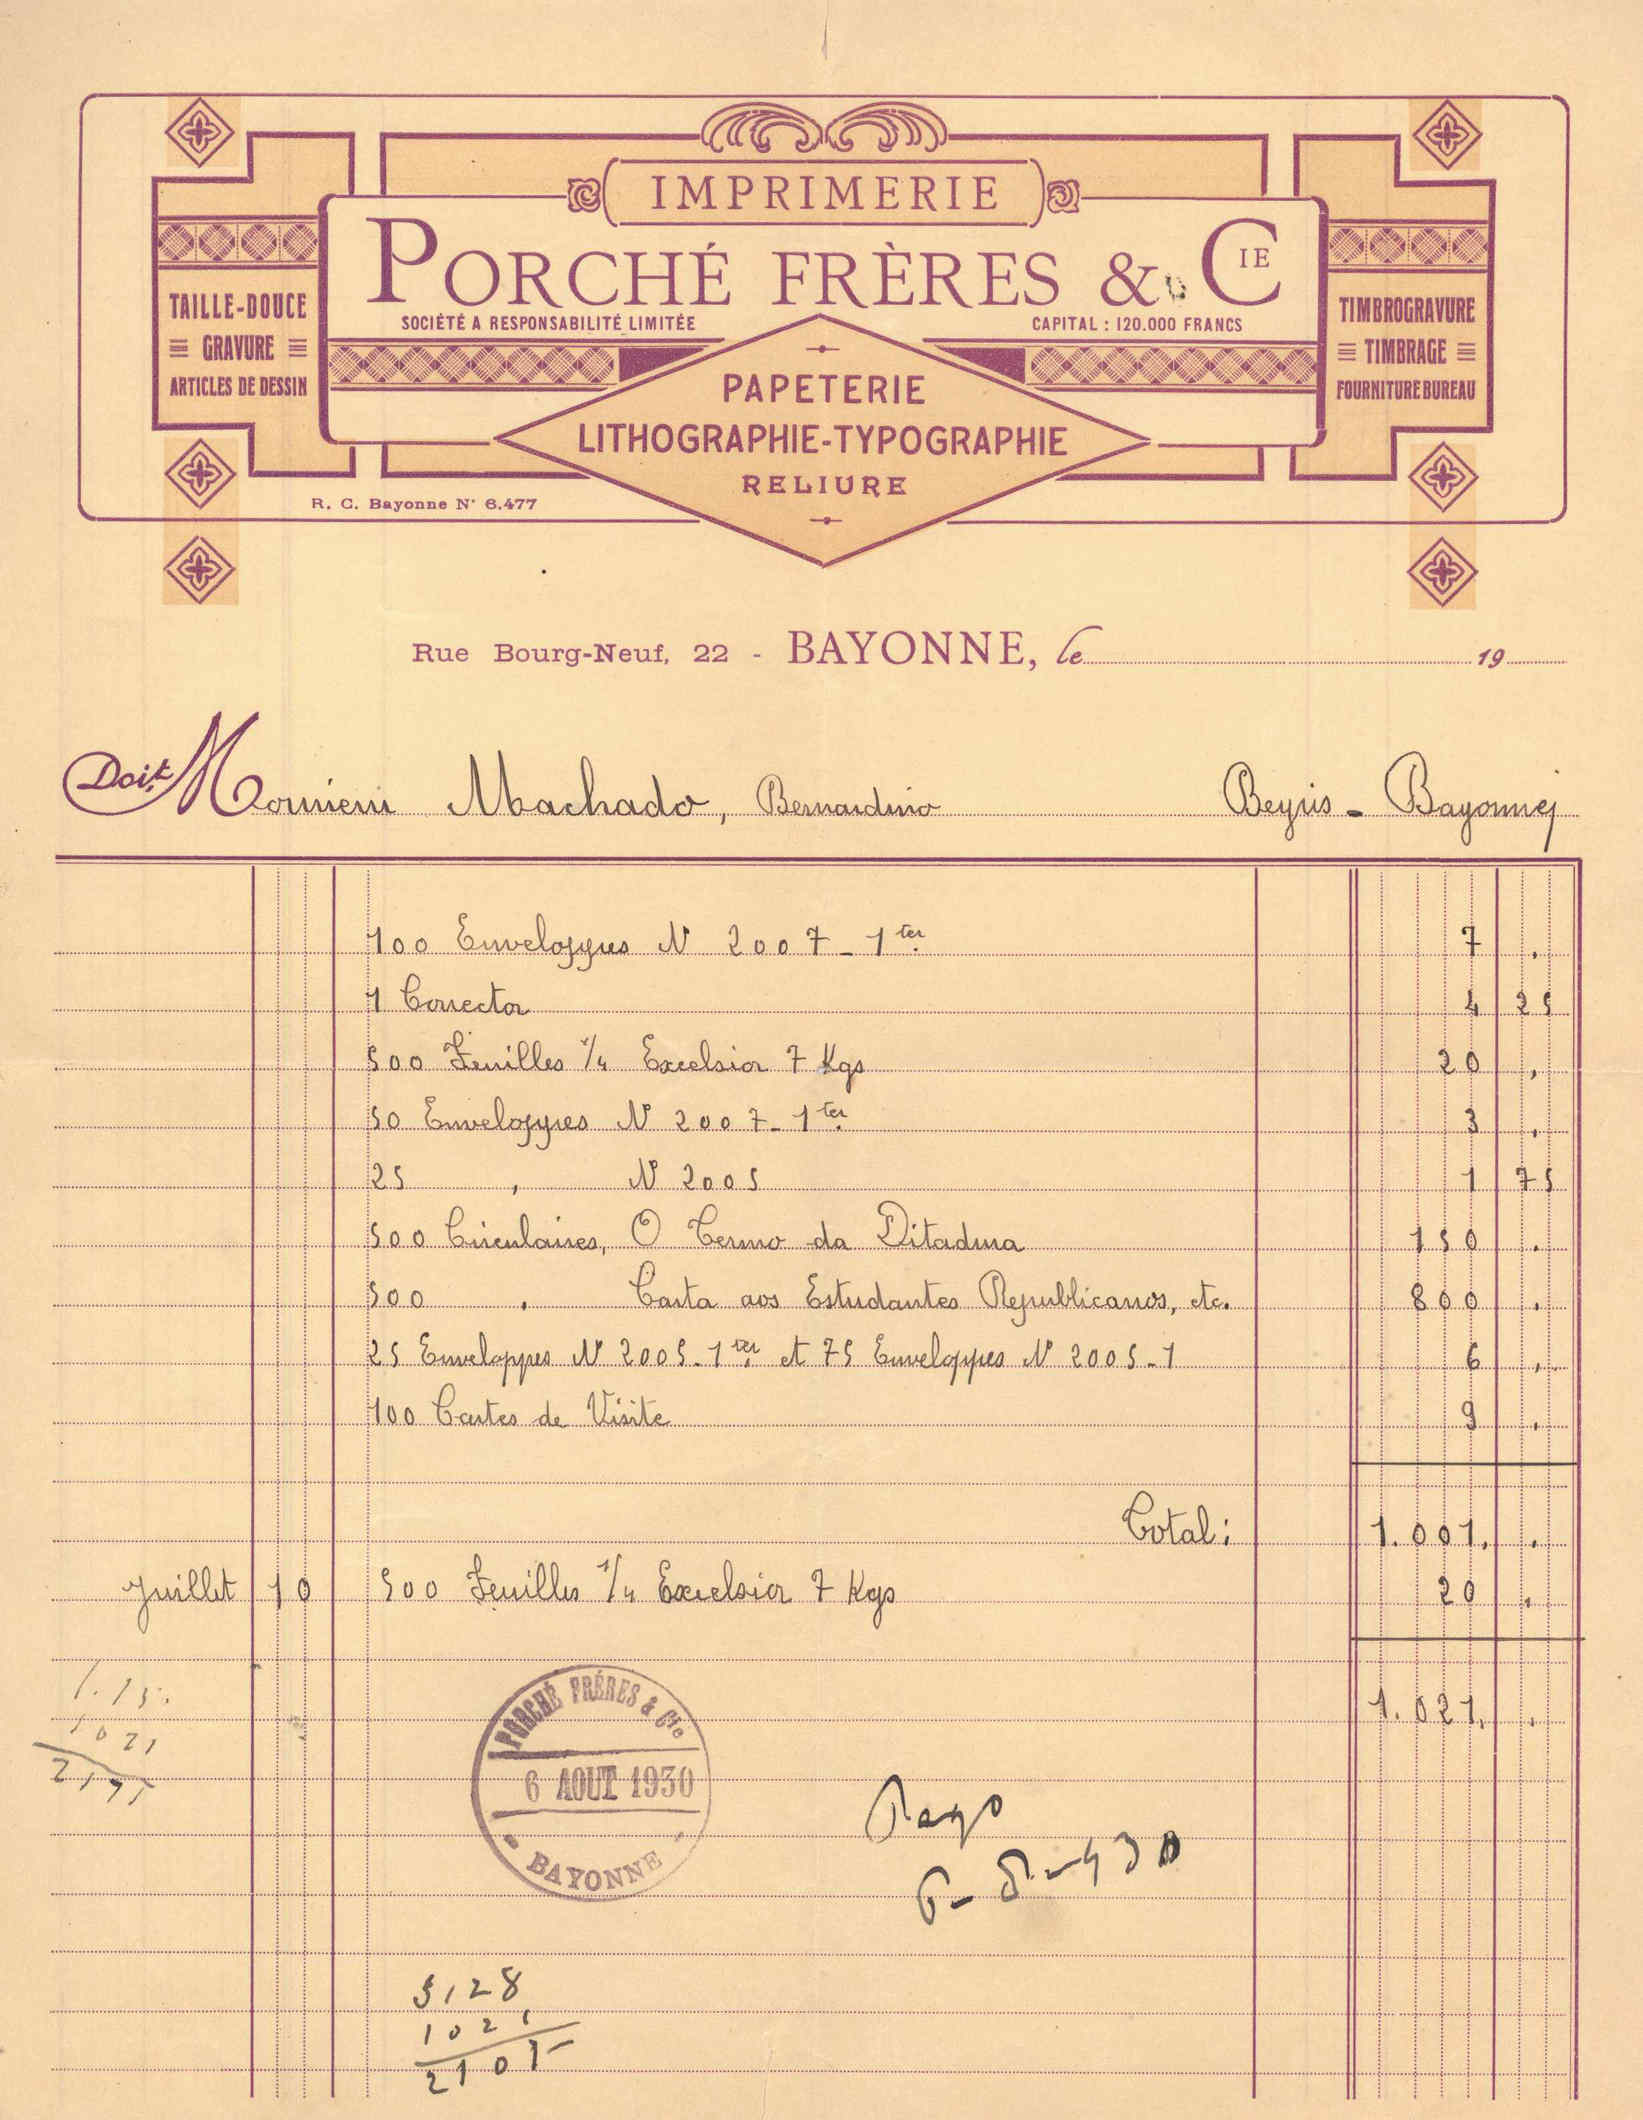 IMPRIMERIE
PORCHÉ FRÈRES & CIE
SOCIÉTÉ A RESPONSABILITÉ LIMITÉE
CAPITAL : 120.000 FRANCS
TAILLE-DOUCE
GRAVURE
ARTICLES DE DESSIN
TIMBROGRAVURE
TIMBRAGE
FOURNITURE BUREAU
PAPETERIE
LITHOGRAPHIE-TYPOGRAPHIE
RELIURE
R. C. Bayonne N° 6.477
Rue Bourg-Neuf, 22 - BAYONNE, le 19
Doit, Machado, Bernardino Beyris - Bayonne
100 Enveloppes N° 2007-1ter. 7 .
1 Corrector 4 25
500 Feuilles 1/4 Excelsior 7 Kgs 20 ,
50 Enveloppes N° 2007-1ter. 3 .
25 , N° 2005 1 75
500 Circulaires, O Termo da Ditadura 150 .
500 , Carta aos Estudantes Republicanos, etc. 800 .
25 Enveloppes N° 2005-1ter et 75 Enveloppes N° 2005-1 6 .
100 Cartes de Visite 9 .
Total: 1.001, .
Juillet 10 500 Feuilles 1/4 Excelsior 7 Kgs 20 .
1.021, .
1021
PORCHÉ FRÈRES & Cie
6 AOUT 1930
BAYONNE
Pago
1021